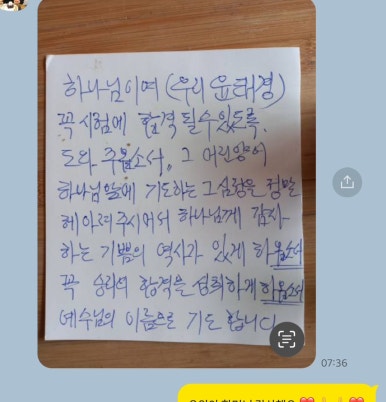 하나님이여 (우리 윤태경)
꼭 시험에 합격 될수있도록
도와 주옵소서. 그 어린양이
하나님앞에 기도하는 그 심령을 정말
헤아려 주시어서 하나님께 감사
하는 기쁨의 역사가 있게 하옵소서
꼭 승리의 합격을 성취하게 하옵소서
예수님의 이름으로 기도 합니다
07:36